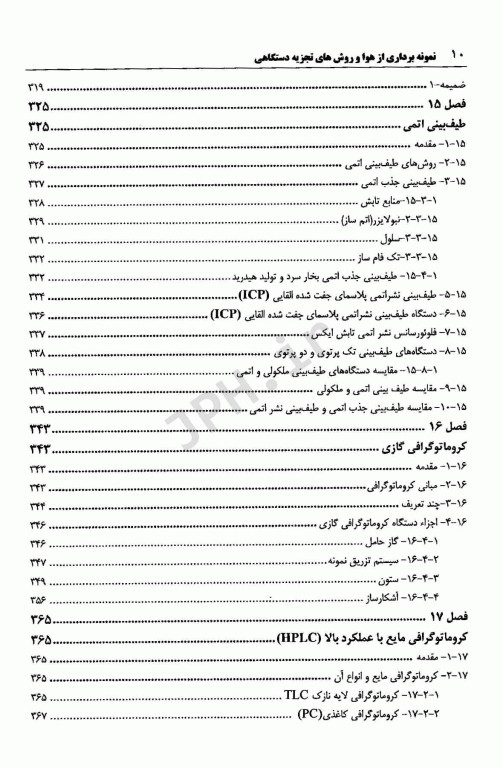 ۱۰ نمونه برداری از هوا و روش های تجزیه دستگاهی
ضمیمه-۱ ........ ۳۱۹
فصل ۱۵ ........ ۳۲۵
طیف‌بینی اتمی ........ ۳۲۵
۱-۱۵- مقدمه ........ ۳۲۵
۲-۱۵- روش‌های طیف‌بینی اتمی ........ ۳۲۶
۳-۱۵- طیف‌بینی جذب اتمی ........ ۳۲۷
۱-۳-۱۵-منابع تابش ........ ۳۲۸
۲-۳-۱۵-نبولایزر(اتم ساز) ........ ۳۲۹
۳-۳-۱۵-سلول ........ ۳۳۱
۳-۳-۱۵-تک فام ساز ........ ۳۳۲
۱-۴-۱۵- طیف‌بینی جذب اتمی بخار سرد و تولید هیدرید ........ ۳۳۲
۵-۱۵- طیف‌بینی نشراتمی پلاسمای جفت شده القایی (ICP) ........ ۳۳۴
۶-۱۵- دستگاه طیف‌بینی نشراتمی پلاسمای جفت شده القایی (ICP) ........ ۳۳۶
۷-۱۵- فلوئورسانس نشر اتمی تابش ایکس ........ ۳۳۷
۸-۱۵- دستگاه‌های طیف‌بینی تک پرتوی و دو پرتوی ........ ۳۳۸
۱-۸-۱۵- مقایسه دستگاه‌های طیف‌بینی ملکولی و اتمی ........ ۳۳۹
۹-۱۵- مقایسه طیف بینی اتمی و ملکولی ........ ۳۳۹
۱۰-۱۵- مقایسه طیف‌بینی جذب اتمی و طیف‌بینی نشر اتمی ........ ۳۳۹
فصل ۱۶ ........ ۳۴۳
کروماتوگرافی گازی ........ ۳۴۳
۱-۱۶- مقدمه ........ ۳۴۳
۲-۱۶- مبانی کروماتوگرافی ........ ۳۴۳
۳-۱۶-چند تعریف ........ ۳۴۴
۴-۱۶- اجزاء دستگاه کروماتوگرافی گازی ........ ۳۴۶
۱-۴-۱۶- گاز حامل ........ ۳۴۶
۲-۴-۱۶- سیستم تزریق نمونه ........ ۳۴۷
۳-۴-۱۶- ستون ........ ۳۴۹
۴-۴-۱۶- آشکارساز ........ ۳۵۶
فصل ۱۷ ........ ۳۶۵
کروماتوگرافی مایع با عملکرد بالا (HPLC) ........ ۳۶۵
۱-۱۷- مقدمه ........ ۳۶۵
۲-۱۷- کروماتوگرافی مایع و انواع آن ........ ۳۶۵
۱-۲-۱۷- کروماتوگرافی لایه نازک TLC ........ ۳۶۵
۲-۲-۱۷- کروماتوگرافی کاغذی(PC) ........ ۳۶۷
JPH.ir